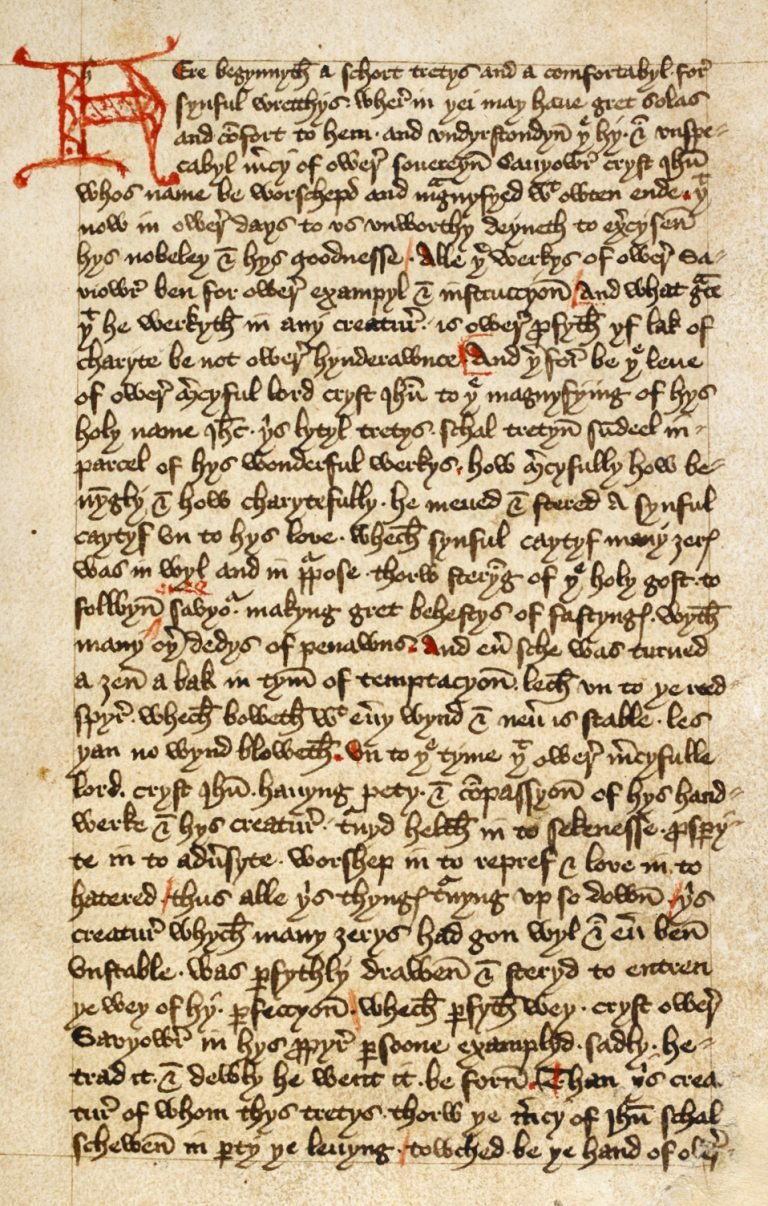 Here begynnyth a schort tretys and a comfortabyl for
synful wrecchys wherin yei may haue gret solas
and cōfort to hem · and vndyrstondyn yᵉ hy · & vnspe=
cabyl m̄cy of ower souereyn Sauyowr cryst Ihū
whos name be worschepd and magnyfyed wᵗ owten ende · yᵗ
now in ower days to vs vnworthy deyneth to exercysen
hys nobeley & hys goodnesse / Alle yᵉ werkys of ower Sa=
viowr ben for ower exampyl & instruccyon / And what grace
yᵗ he werkyth in any creatur · is ower profyth yf lak of
charyte be not ower hynderawnce / And yerfor be yᵉ leue
of ower mercyful lord cryst Ihū to yᵉ magnyfying of hys
holy name Ihc · yis lytyl tretys · schal tretyn sūdeel in=
parcel of hys wonderful werkys · how mercyfully how be=
nyngly & how charytefully · he meued & stered A synful
caytyf vn to hys love · whech synful caytyf many ȝerys
was in wyl and in ꝑpose · thorw steryng of yᵉ holy gost · to
folwyn savyoʳ · makyng gret behestys of fastyngys · wyth
many oyer dedys of penawns · And eū sche was turned
a ȝen a bak in tym of temptacyon · lech vn to ye reed=
spyr · whech boweth wᵗ eūy wynd & neū is stable · les
yan no wynd bloweth · Vn to yᵉ tyme yᵗ ower m̄cyfulle
lord · cryst Ihū · hauyng pety · & cōpassyon of hys hand=
werke & hys creatur · turnyd helth in to sekenesse · ꝓspꝑy=
te in to adūsyte · worshep in to repref & love in to
hatered / thus alle yis thyngys turnyng vp so down / yis
creatur whych many ȝerys had gon wyl & eū ben
vnstable · was ꝑfythly drawen & steryd to entren
ye wey of hy · ꝑfeccyon · / whech ꝑfyth wey · cryst ower
Savyowr in hys ꝓpyr ꝑsoone examplyd · sadly · he=
trad it · & dewly he went it · be forn · / Than yis crea
tur of whom thys tretys · thorw ye m̄cy of Ihū schal
schewen in ꝑty ye leuyng · / towched be ye hand of ower